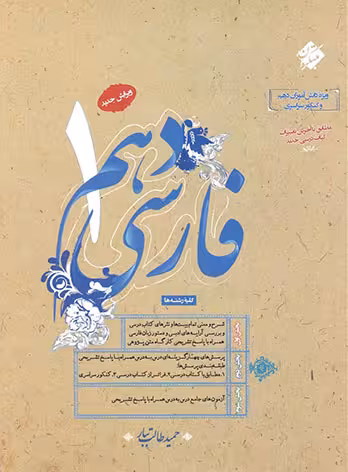 مبتکران
ویژه دانش‌آموزان دهم
و کنکور سراسری
مطابق با آخرین تغییرات
کتاب درسی جدید
ویرایش جدید
فارسی
دهم
۱
کلیه رشته‌ها
شرح و معنی تمام بیت‌ها و نثرهای کتاب درسی
و بررسی آرایه‌های ادبی و دستور زبان فارسی
همراه با پاسخ تشریحی کارگاه متن‌پژوهی
پرسش‌های چهارگزینه‌ای درس به درس همراه با پاسخ تشریحی
طبقه‌بندی پرسش‌ها:
۱. مطابق با کتاب درسی ۲. فراتر از کتاب درسی ۳. کنکور سراسری
آزمون‌های جامع درس به درس همراه با پاسخ تشریحی
حمید طالب تبار